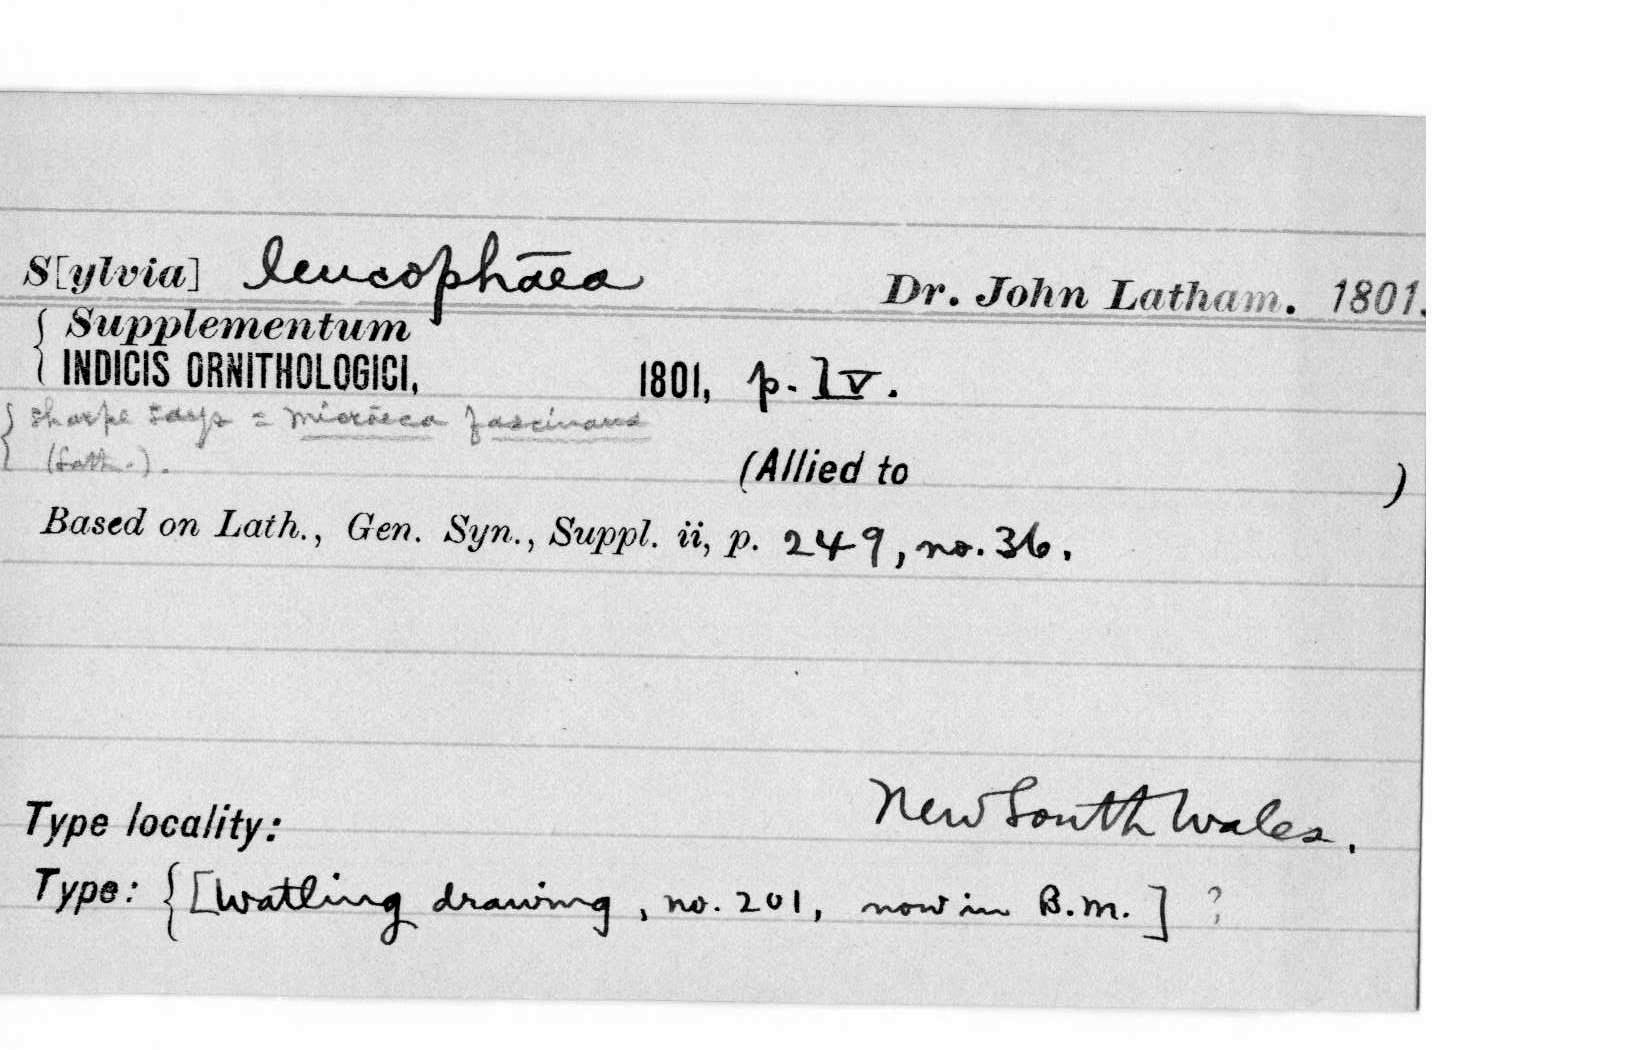 S[ylvia] leucophāea Dr. John Latham. 1801.
{ Supplementum
INDICIS ORNITHOLOGICI, 1801, p. lv.
{ Sharpe says = Micrœca fascinans
(Lath.). (Allied to )
Based on Lath., Gen. Syn., Suppl. ii, p. 249, no. 36.
Type locality: New South Wales.
Type: { [Watling drawing, no. 201, now in B.M.] ?